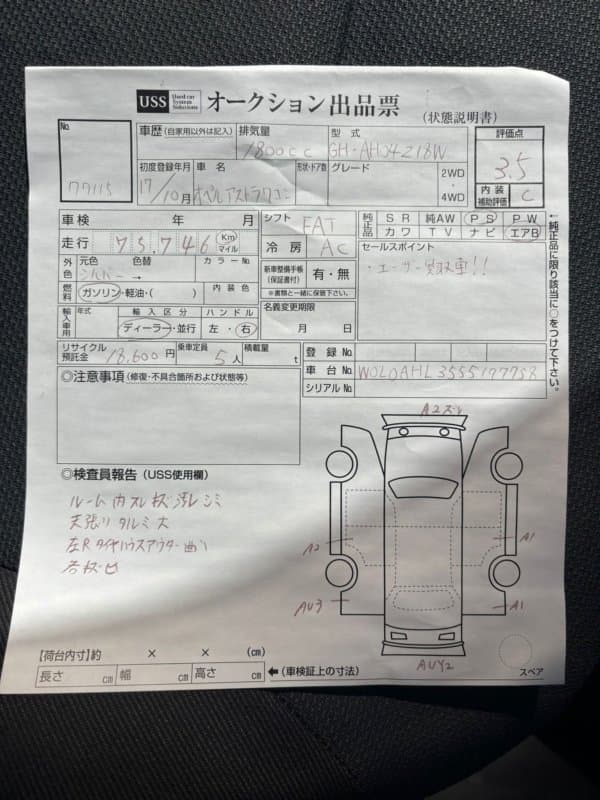 USS Used car System Solutions オークション出品票 (状態説明書)
No. 77115
車歴 (自家用以外は記入)
排気量 1800cc
型式 GH-AH04Z18W
評価点 3.5
内装補助評価 C
初度登録年月 17/10月
車名 オペルアストラワゴン
形状・ドア数
グレード
2WD・4WD
車検 年 月
シフト FAT
純正品 SR 純AW PS PW
カワ TV ナビ エアB
走行 75,746 Km マイル
冷房 AC
セールスポイント
・ユーザー買取車!!
外色 元色 色替 カラーNo
シルバー →
新車整備手帳(保証書付) 有・無
※書類と一緒に保管下さい。
燃料 ガソリン・軽油・( ) 内装色
名義変更期限
月 日
輸入車用 年式 輸入区分 ハンドル
ディーラー・並行 左・右
←純正品に限り該当に○をつけて下さい。
リサイクル預託金 18,600円 乗車定員 5人 積載量 t
登録No.
車台No. W0L0AHL3555197758
シリアルNo.
◎注意事項 (修復・不具合箇所および状態等)
◎検査員報告 (USS使用欄)
ルーム内スレ キズ 汚レ シミ
天張リ タルミ大
左Rタイヤハウスアウター曲リ
各キズ凹
A2ズレ
A2 A1
AU3 A1
AUY2
スペア
【荷台内寸】約 × × (cm)
長さ cm 幅 cm 高さ cm ←(車検証上の寸法)